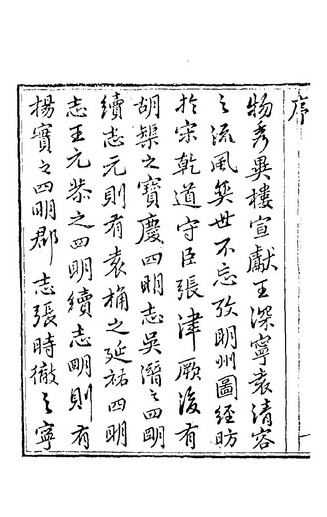 序
一
物秀異樓宣獻王深寧袁清容
之流風奕世不忘攷明州圖經昉
於宋乾道守臣張津厥後有
胡榘之寶慶四明志吳潛之四明
續志元則有袁桷之延祐四明
志王元恭之四明續志明則有
楊實之四明郡志張時徹之寧